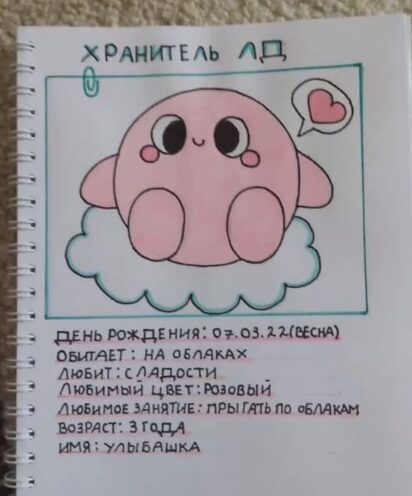 ХРАНИТЕЛЬ ЛД
ДЕНЬ РОЖДЕНИЯ: 07.03.22(ВЕСНА)
ОБИТАЕТ: НА ОБЛАКАХ
ЛЮБИТ: СЛАДОСТИ
ЛЮБИМЫЙ ЦВЕТ: РОЗОВЫЙ
ЛЮБИМОЕ ЗАНЯТИЕ: ПРЫГАТЬ ПО ОБЛАКАМ
ВОЗРАСТ: 3 ГОДА
ИМЯ: УЛЫБАШКА